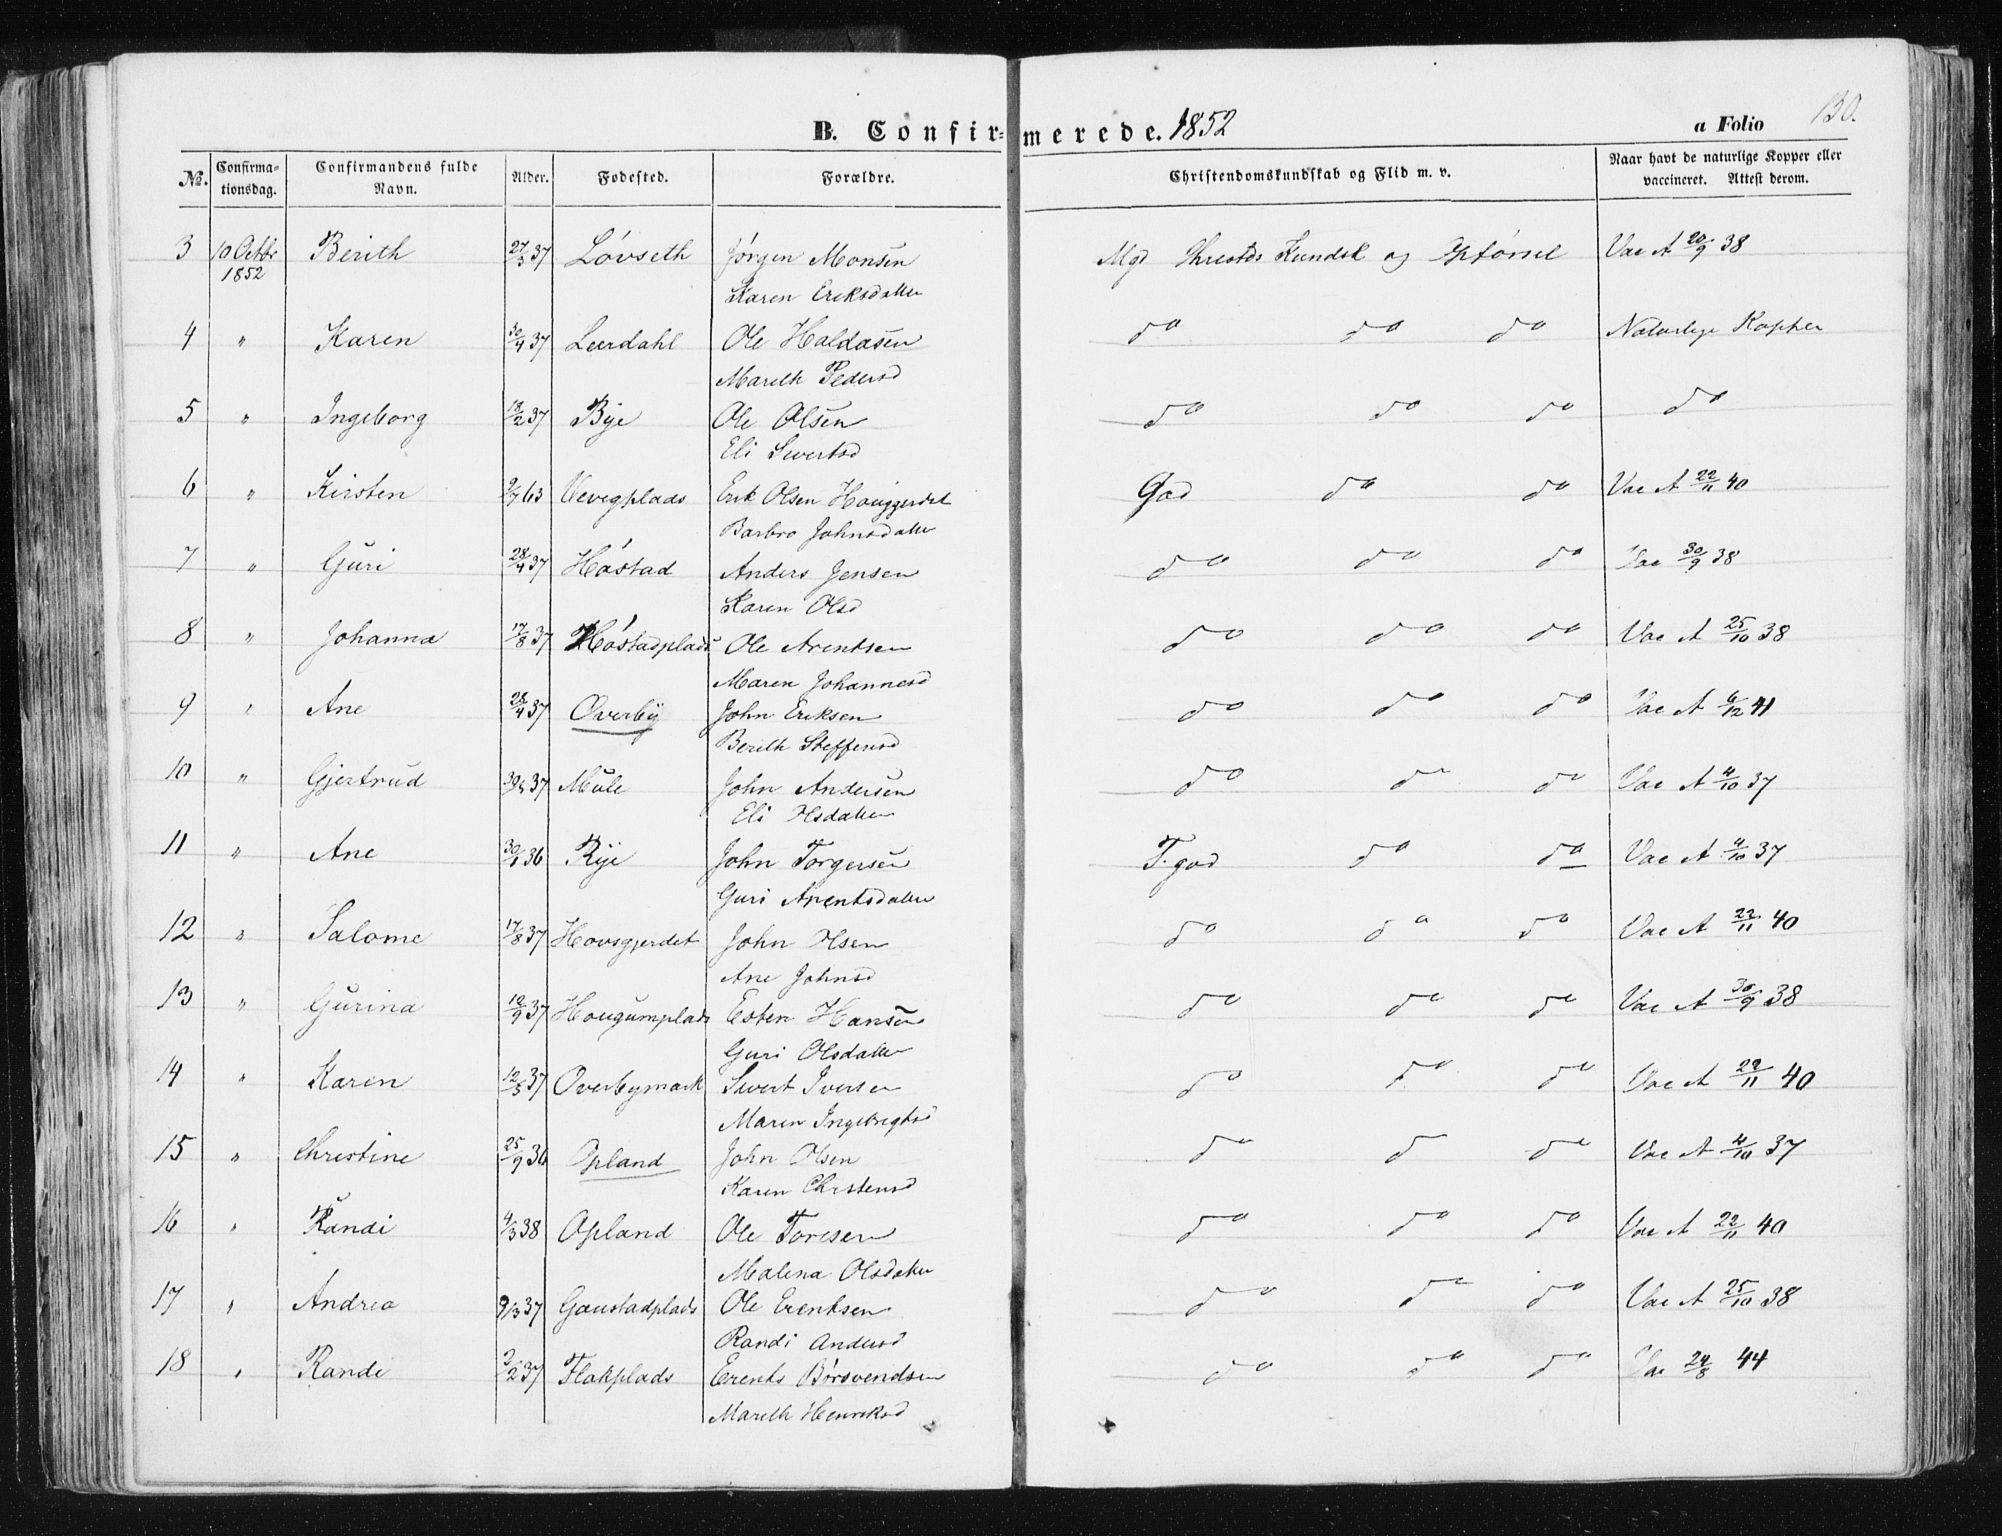 B. Confir- merede. 1852
a Folio 130.
No. Confirma-tionsdag. Confirmandens fulde Navn. Alder. Fødested. Forældre. Christendomskundskab og Flid m. v. Naar havt de naturlige Kopper eller vaccineret. Attest derom.
3 10 Octbr 1852 Berith 27/3 37 Lövseth Jörgen Monsen Mgd Christds Kundsk og Opförsel Vac A 20/9 38
Karen Eriksdatter
4 " Karen 30/4 37 Leerdahl Ole Haldosen do do do Naturlige Kopper
Mareth Pedersd
5 " Ingeborg 18/2 37 Bye Ole Olsen do do do do
Eli Sivertsd
6 " Kirsten 9/7 63 Vevegplads Erik Olsen Houggerdet God do do Vac A 22/11 40
Barbro Johnsdatter
7 " Guri 28/4 37 Höstad Anders Jensen do do do Vac 30/9 38
Karen Olsd
8 " Johanna 17/8 37 Höstadplads Ole Arentsen do do do Vac A 25/10 38
Maren Johannesd
9 " Ane 28/4 37 Overby John Eriksen do do do Vac A 6/12 41
Berith Steffensd
10 " Gjertrud 37 Mule John Andersen do do do Vac A 4/10 37
Eli Olsdatter
11 " Ane 36 Rye John Torgersen T. god do do Vac A 4/10 37
Guri Arentsdatter
12 " Salome 17/8 37 Hovsgjerdet John Olsen do do do Vac A 22/11 40
Ane Johnsd
13 " Gurina 12/9 37 Hougumplads Esten Hansen do do do Vac A 30/9 38
Guri Olsdatter
14 " Karen 12/5 37 Overbymark Sivert Iversen do do do Vac A 22/11 40
Maren Ingebrigtsd
15 " Christine 25/9 36 Opland John Olsen do do do Vac A 4/10 37
Karen Christensd
16 " Randi 4/3 38 Opland Ole Toresen do do do Vac A 22/11 40
Malena Olsdatter
17 " Andrea 9/3 37 Goustadplads Ole Erentsen do do do Vac A 25/10 38
Randi Andersd
18 " Randi 2/2 37 Flakplads Erents Börsvendsen do do do Vac 24/8 44
Mareth Henriksd